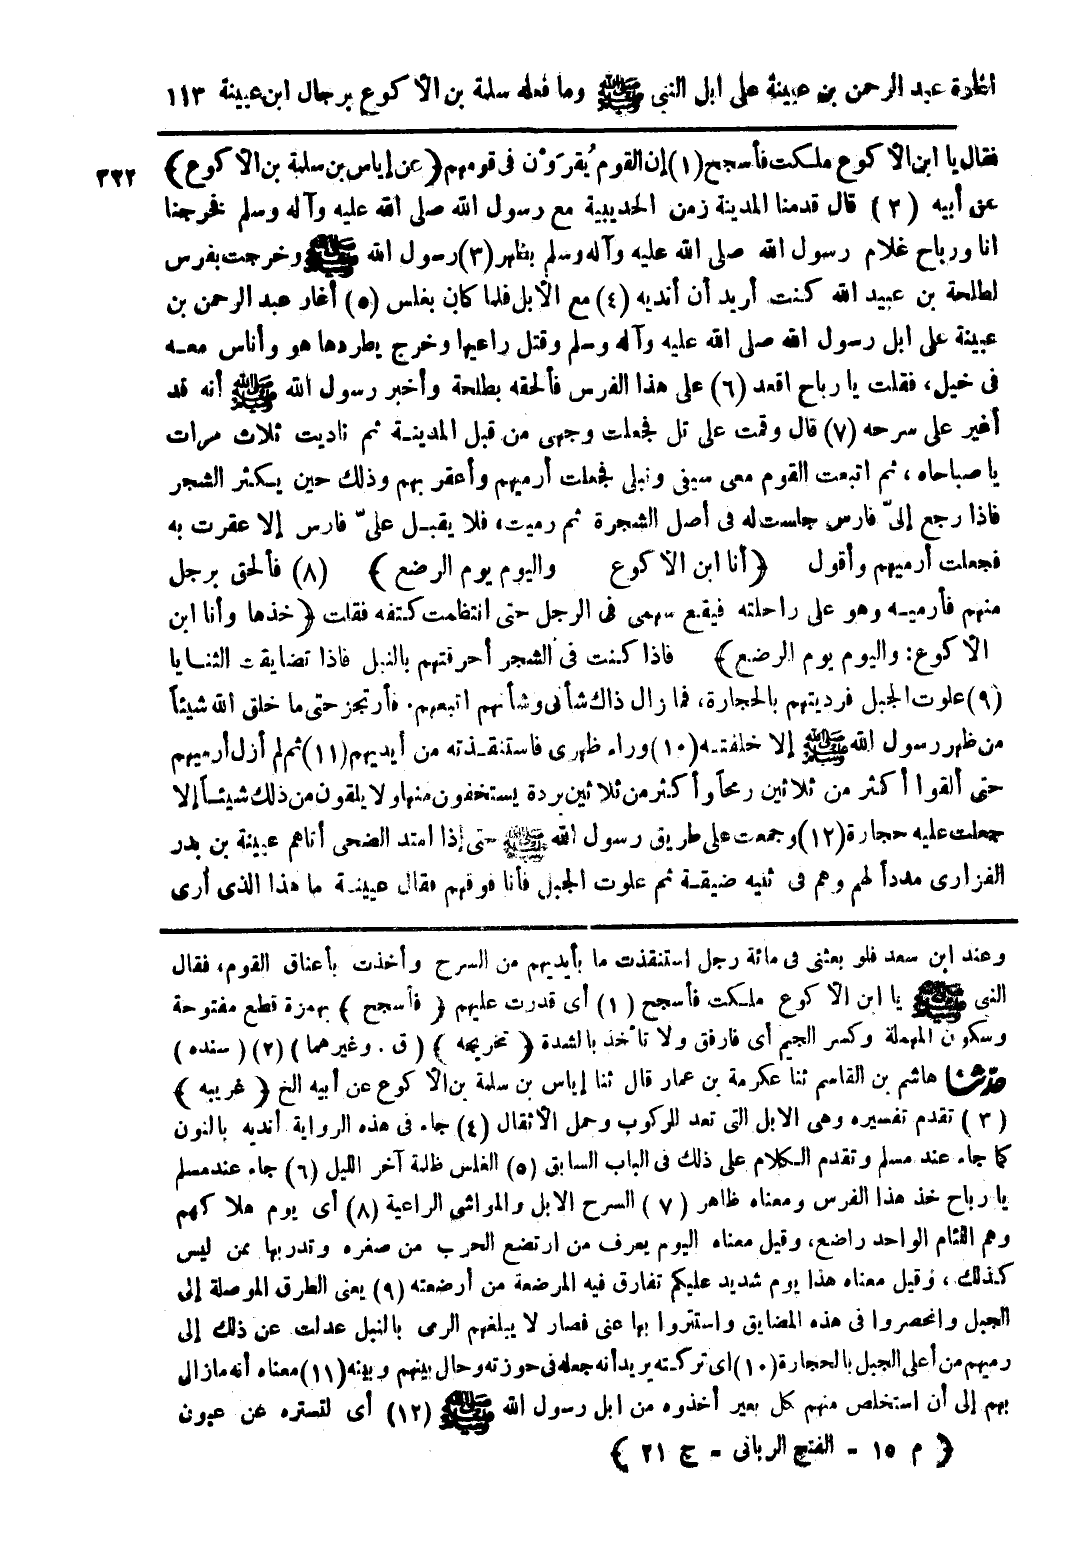 اغارة عبد الرحمن بن عيينة على ابل النبى ﷺ وما فعله سلمة بن الأكوع برجال ابن عيينة ١١٣
فقال يا ابن الأكوع ملكت فأسجح (١) إن القوم يُقرَوْن فى قومهم ﴿عن إياس بن سلمة بن الأكوع﴾ ٣٣٢
عن أبيه (٢) قال قدمنا المدينة زمن الحديبية مع رسول الله صلى الله عليه وآله وسلم فخرجنا
انا ورباح غلام رسول الله صلى الله عليه وآله وسلم بظهر (٣) رسول الله ﷺ وخرجت بفرس
لطلحة بن عبيد الله كنت أريد أن أنديه (٤) مع الأبل فلما كان بغلس (٥) أغار عبد الرحمن بن
عيينة على ابل رسول الله صلى الله عليه وآله وسلم وقتل راعيها وخرج يطردها هو وأناس معه
فى خيل، فقلت يا رباح اقعد (٦) على هذا الفرس فألحقه بطلحة وأخبر رسول الله ﷺ أنه قد
أغير على سرحه (٧) قال وقمت على تل فجعلت وجهى من قبل المدينة ثم ناديت ثلاث مرات
يا صباحاه، ثم اتبعت القوم معى سيفى ونبلى فجعلت أرميهم وأعقر بهم وذلك حين يكثر الشجر
فاذا رجع إلىّ فارس جلست له فى أصل الشجرة ثم رميت، فلا يقبل علىّ فارس إلا عقرت به
فجعلت أرميهم وأقول ﴿أنا ابن الأكوع واليوم يوم الرضع﴾ (٨) فألحق برجل
منهم فأرميه وهو على راحلته فيقع سهمى فى الرجل حتى انتظمت كتفه فقلت ﴿خذها وأنا ابن
الأكوع: واليوم يوم الرضع﴾ فاذا كنت فى الشجر أحرقتهم بالنبل فاذا تضايقت الثنايا
(٩) علوت الجبل فرديتهم بالحجارة، فما زال ذاك شأنى وشأنهم اتبعهم. فأرتجز حتى ما خلق الله شيئاً
من ظهر رسول الله ﷺ إلا خلفته (١٠) وراء ظهرى فاستنقذته من أيديهم (١١) ثم لم أزل أرميهم
حتى ألقوا أكثر من ثلاثين رمحاً وأكثر من ثلاثين بردة يستخفون منها ولا يلقون من ذلك شيئاً إلا
جعلت عليه حجارة (١٢) وجمعت على طريق رسول الله ﷺ حتى إذا امتد الضحى أتاهم عيينة بن بدر
الفزارى مدداً لهم وهم فى ثنيه ضيقة ثم علوت الجبل فأنا فوقهم فقال عيينة ما هذا الذى أرى
وعند ابن سعد فلو بعثنى فى مائة رجل استنقذت ما بأيديهم من السرح وأخذت بأعناق القوم، فقال
النبى ﷺ يا ابن الأكوع ملكت فأسجح (١) أى قدرت عليهم ﴿فأسجح﴾ بهمزة قطع مفتوحة
وسكون المهملة وكسر الجيم أى فارفق ولا تأخذ بالشدة ﴿تخريجه﴾ (ق. وغيرهما) (٢) (سنده)
حدّثنا هاشم بن القاسم ثنا عكرمة بن عمار قال ثنا إياس بن سلمة بن الأكوع عن أبيه الخ ﴿غريبه﴾
(٣) تقدم تفسيره وهى الابل التى تعد للركوب وحمل الأثقال (٤) جاء فى هذه الرواية أنديه بالنون
كما جاء عند مسلم وتقدم الكلام على ذلك فى الباب السابق (٥) الغلس ظلمة آخر الليل (٦) جاء عند مسلم
يا رباح خذ هذا الفرس ومعناه ظاهر (٧) السرح الابل والمواشى الراعية (٨) أى يوم هلاكهم
وهم اللئام الواحد راضع، وقيل معناه اليوم يعرف من ارتضع الحرب من صغره وتدربها ممن ليس
كذلك، وقيل معناه هذا يوم شديد عليكم تفارق فيه المرضعة من أرضعته (٩) يعنى الطرق الموصلة إلى
الجبل وانحصروا فى هذه المضايق واستتروا بها عنى فصار لا يبلغهم الرمى بالنبل عدلت عن ذلك إلى
رميهم من أعلى الجبل بالحجارة (١٠) اى تركته يريد أنه جعله فى حوزته وحال بينهم وبينه (١١) معناه أنه مازال
بهم إلى أن استخلص منهم كل بعير أخذوه من ابل رسول الله ﷺ (١٢) أى لتستره عن عيون
﴿م ١٥ - الفتح الربانى - ج ٢١﴾